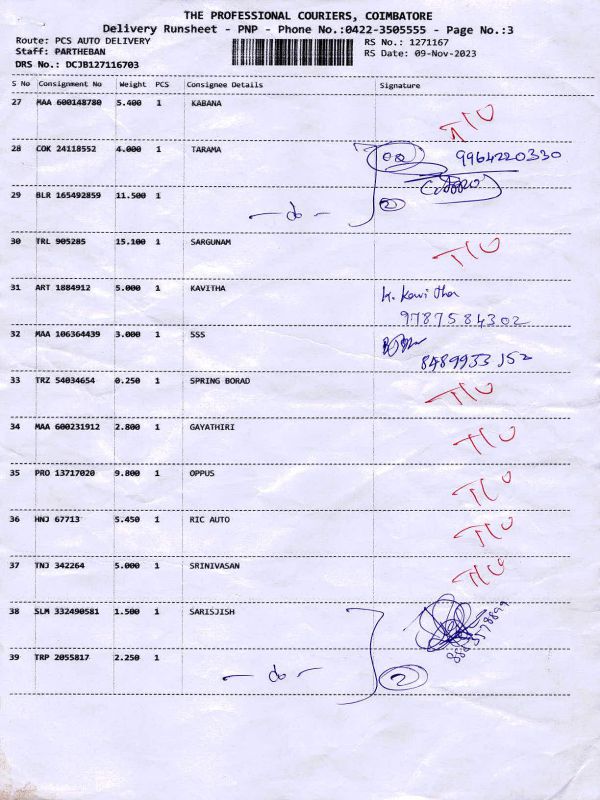 THE PROFESSIONAL COURIERS, COIMBATORE
Delivery Runsheet - PNP - Phone No.:0422-3505555 - Page No.:3
Route: PCS AUTO DELIVERY RS No.: 1271167
Staff: PARTHEBAN RS Date: 09-Nov-2023
DRS No.: DCJB127116703
S No Consignment No Weight PCS Consignee Details Signature
27 MAA 600148780 5.400 1 KABANA T/U
28 COK 24118552 4.000 1 TARAMA 9964220330
29 BLR 165492859 11.500 1 — do — 2
30 TRL 905285 15.100 1 SARGUNAM T/U
31 ART 1884912 5.000 1 KAVITHA K. Kavitha
9787584302
32 MAA 106364439 3.000 1 SSS
8489933152
33 TRZ 54034654 0.250 1 SPRING BORAD T/U
34 MAA 600231912 2.800 1 GAYATHIRI T/U
35 PRO 13717020 9.800 1 OPPUS T/U
36 HNJ 67713 5.450 1 RIC AUTO T/U
37 TNJ 342264 5.000 1 SRINIVASAN T/U
38 SLM 332490581 1.500 1 SARISJISH
39 TRP 2055817 2.250 1 — do — 2